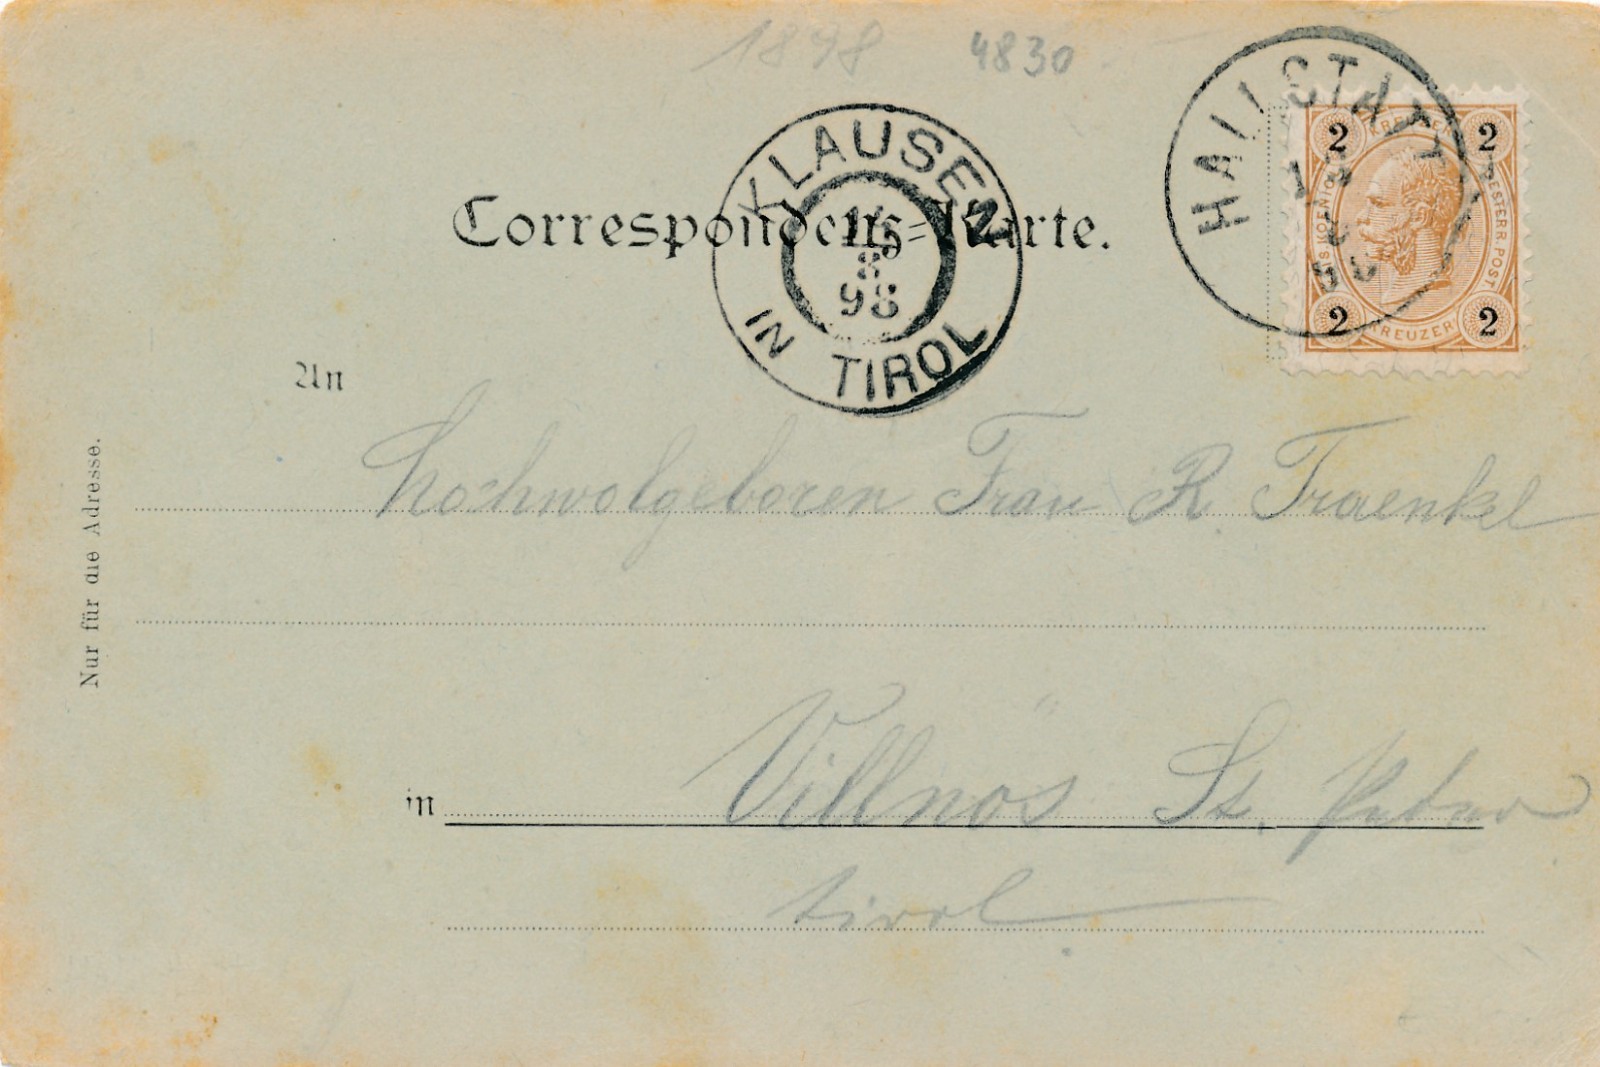 1898 4830
HALLSTATT
KLAUSEN
IN TIROL
8
98
KREUZER
2 2
OESTERR. POST
2 2
KREUZER
Correspondenz-Karte.
An
Hochwolgeboren Frau R. Fraenkel
Nur für die Adresse.
in Villnös St. Peter
Tirol